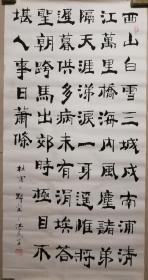 西山白雪三城戍南浦清
江萬里橋海內風塵諸弟
隔天涯涕淚一身遙惟將
遲暮供多病未有涓埃答
聖朝跨馬出郊時極目不
堪人事日蕭條
杜甫 野望